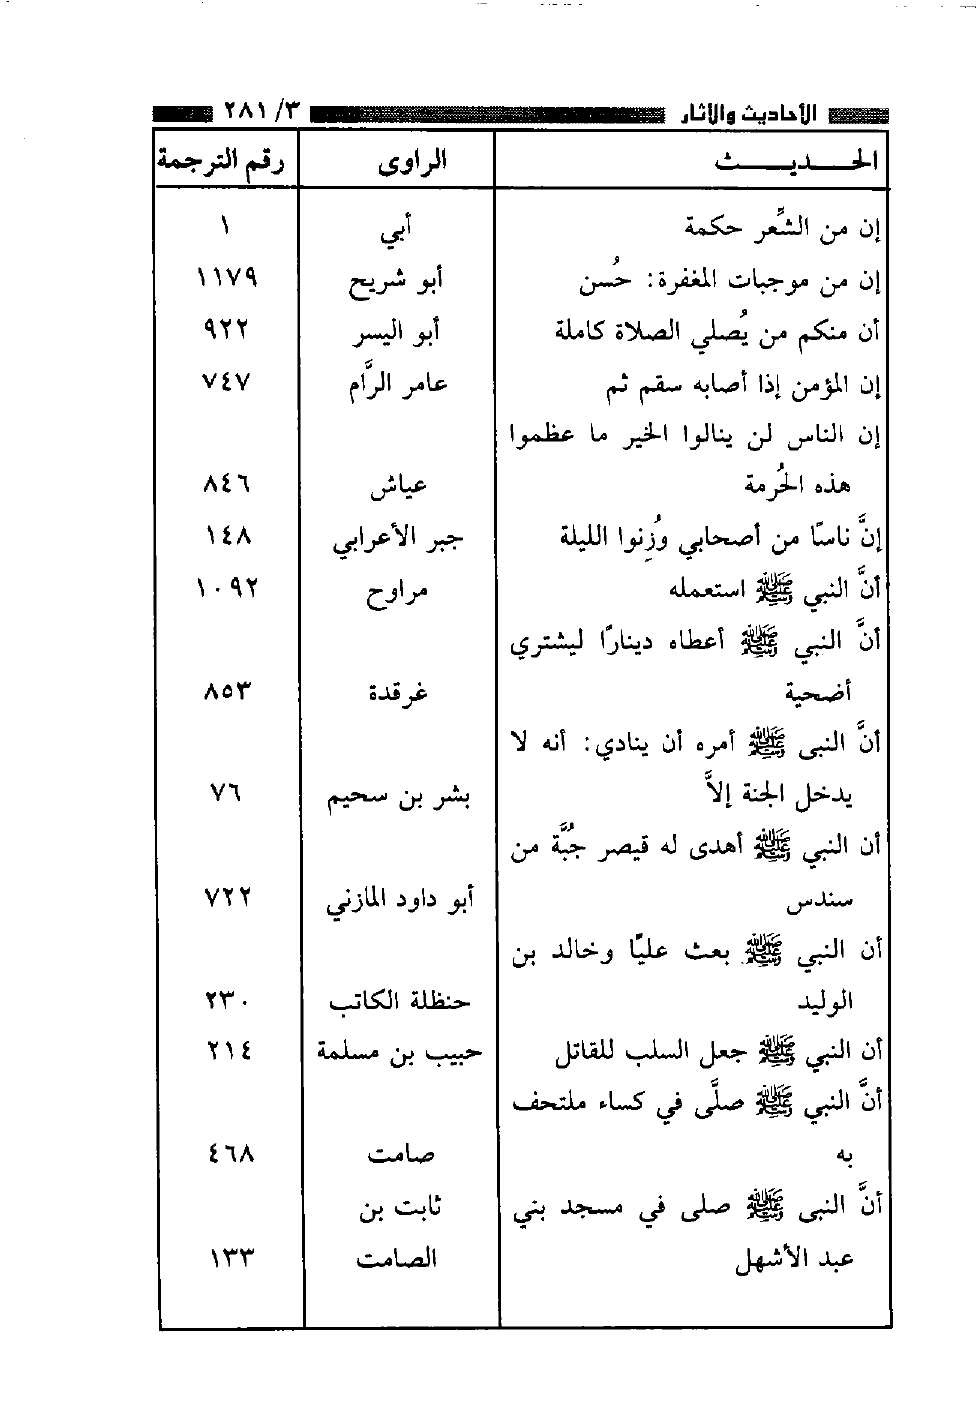 الأحاديث والآثار ٣/ ٢٨١
الحـــديـــــث الراوى رقم الترجمة
إن من الشِّعر حكمة أبي ١
إن من موجبات المغفرة: حُسن أبو شريح ١١٧٩
أن منكم من يُصلي الصلاة كاملة أبو اليسر ٩٢٢
إن المؤمن إذا أصابه سقم ثم عامر الرَّام ٧٤٧
إن الناس لن ينالوا الخير ما عظموا
هذه الحُرمة عياش ٨٤٦
إنَّ ناسًا من أصحابي وُزِنوا الليلة جبر الأعرابي ١٤٨
أنَّ النبي ﷺ استعمله مراوح ١٠٩٢
أنَّ النبي ﷺ أعطاه دينارًا ليشتري
أضحية غرقدة ٨٥٣
أنَّ النبى ﷺ أمره أن ينادي: أنه لا
يدخل الجنة إلاَّ بشر بن سحيم ٧٦
أن النبي ﷺ أهدى له قيصر جُبَّة من
سندس أبو داود المازني ٧٢٢
أن النبي ﷺ بعث عليًا وخالد بن
الوليد حنظلة الكاتب ٢٣٠
أن النبي ﷺ جعل السلب للقاتل حبيب بن مسلمة ٢١٤
أنَّ النبي ﷺ صلَّى في كساء ملتحف
به صامت ٤٦٨
أنَّ النبى ﷺ صلى في مسجد بني ثابت بن
عبد الأشهل الصامت ١٣٣